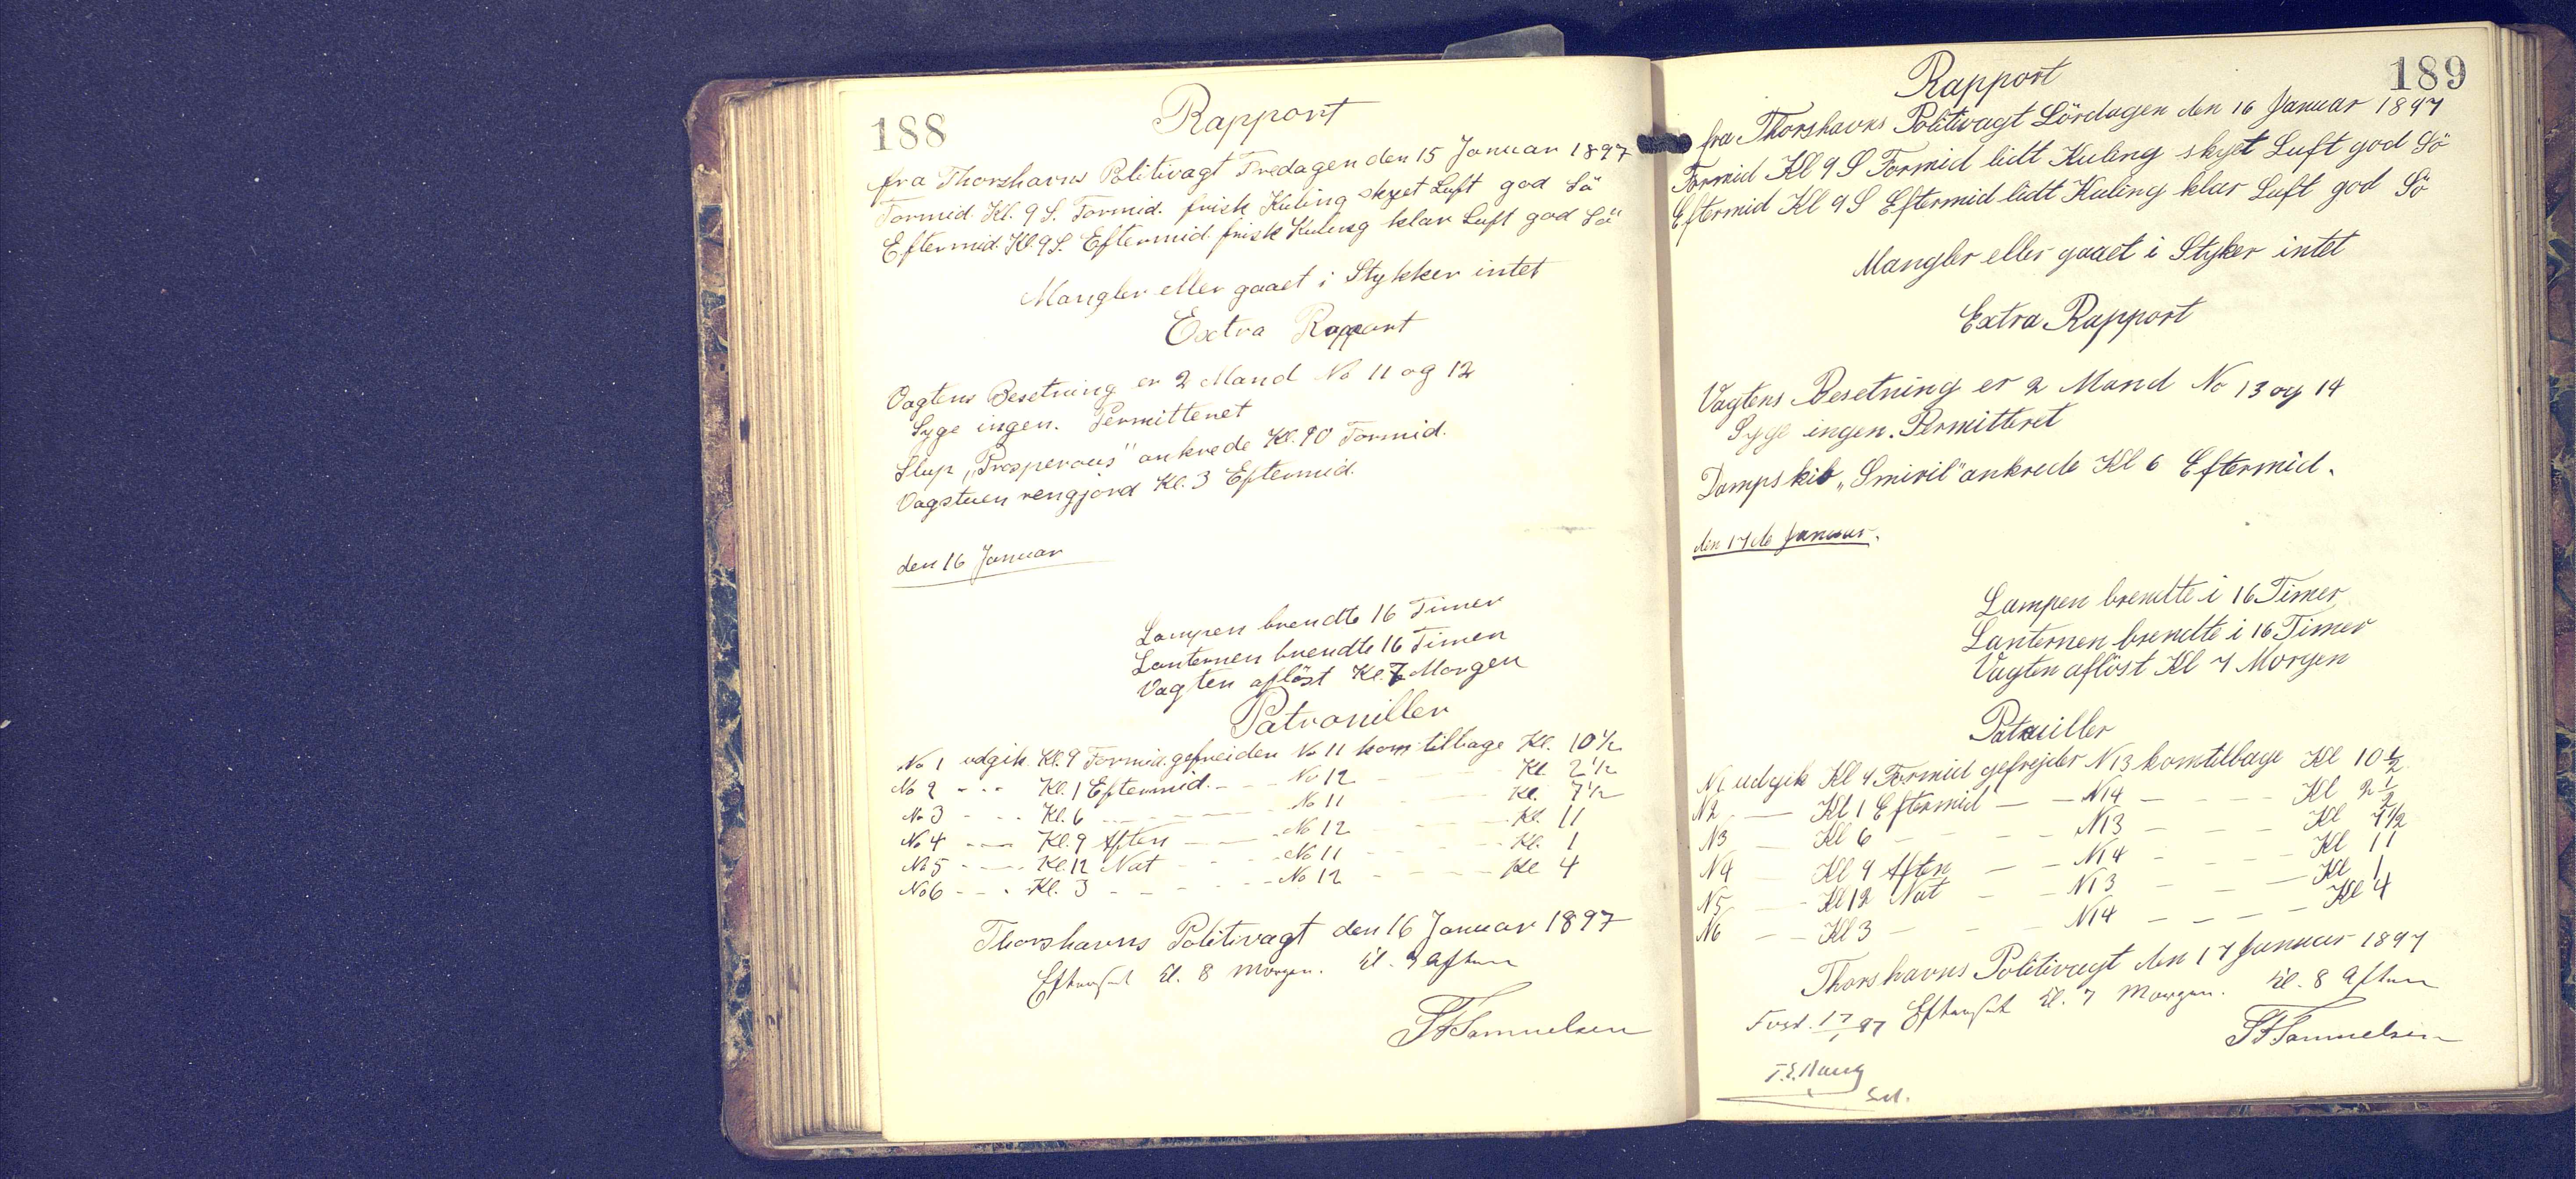 188
Rapport
fra Thorshavns Politivagt Fredagen den 15 Januar 1897
Formid. Kl. 9 S. Formid. frisk Kuling skyet Luft god Sö
Eftermid. Kl. 9 S. Eftermid. frisk Kuling klar Luft god Sö
Mangler eller gaaet i Stykker intet
Extra Rapport
Vagtens Besetning er 2 Mand No 11 og 12
Syge ingen. Permitteret
Slup „Prosperous" ankrede Kl. 10 Formid.
Vagstuen rengjord Kl. 3 Eftermid.
den 16 Januar
Lampen brendte 16 Timer
Lanternen brendte 16 Timer
Vagten aflöst Kl. 7 Morgen
Patrouiller
No 1 udgik Kl. 9 Formid. gefreiden No 11 kom tilbage Kl. 10½
No 2 - - - Kl. 1 Eftermid. - - - No 12 - - - Kl. 2½
No 3 - - - Kl. 6 - - - No 11 - - - Kl. 7½
No 4 - - - Kl. 9 Aften - - - No 12 - - - Kl. 11
No 5 - - - Kl. 12 Nat - - - No 11 - - - Kl. 1
No 6 - - - Kl. 3 - - - No 12 - - - Kl 4
Thorshavns Politivagt den 16 Januar 1897
Efterset kl. 8 Morgen. kl. 9 Aften
Samuelsen
189
Rapport
fra Thorshavns Politivagt Lördagen den 16 Januar 1897
Formid Kl 9 S Formid lidt Kuling skyet Luft god Sö
Eftermid Kl 9 S Eftermid lidt Kuling klar Luft god Sö
Mangler eller gaaet i Styker intet
Extra Rapport
Vagtens Besetning er 2 Mand No 13 og 14
Syge ingen. Permitteret
Dampskib „Smiril" ankrede Kl 6 Eftermid.
den 17de Januar.
Lampen brendte i 16 Timer
Lanternen brendte i 16 Timer
Vagten aflöst Kl 7 Morgen
Patruiller
N1 udgik Kl 9 Formid gefrejder N13 kom tilbage Kl 10½
N2 — Kl 1 Eftermid — — N14 — — — Kl 2½
N3 — Kl 6 — — — N13 — — — Kl 7½
N4 — Kl 9 Aften — — N14 — — — Kl 11
N5 — Kl 12 Nat — — N13 — — — Kl 1
N6 — Kl 3 — — — N14 — — — Kl 4
Thorshavns Politivagt den 17 Januar 1897
Efterset kl. 7 Morgen. kl. 8 Aften
17/1 97
Samuelsen